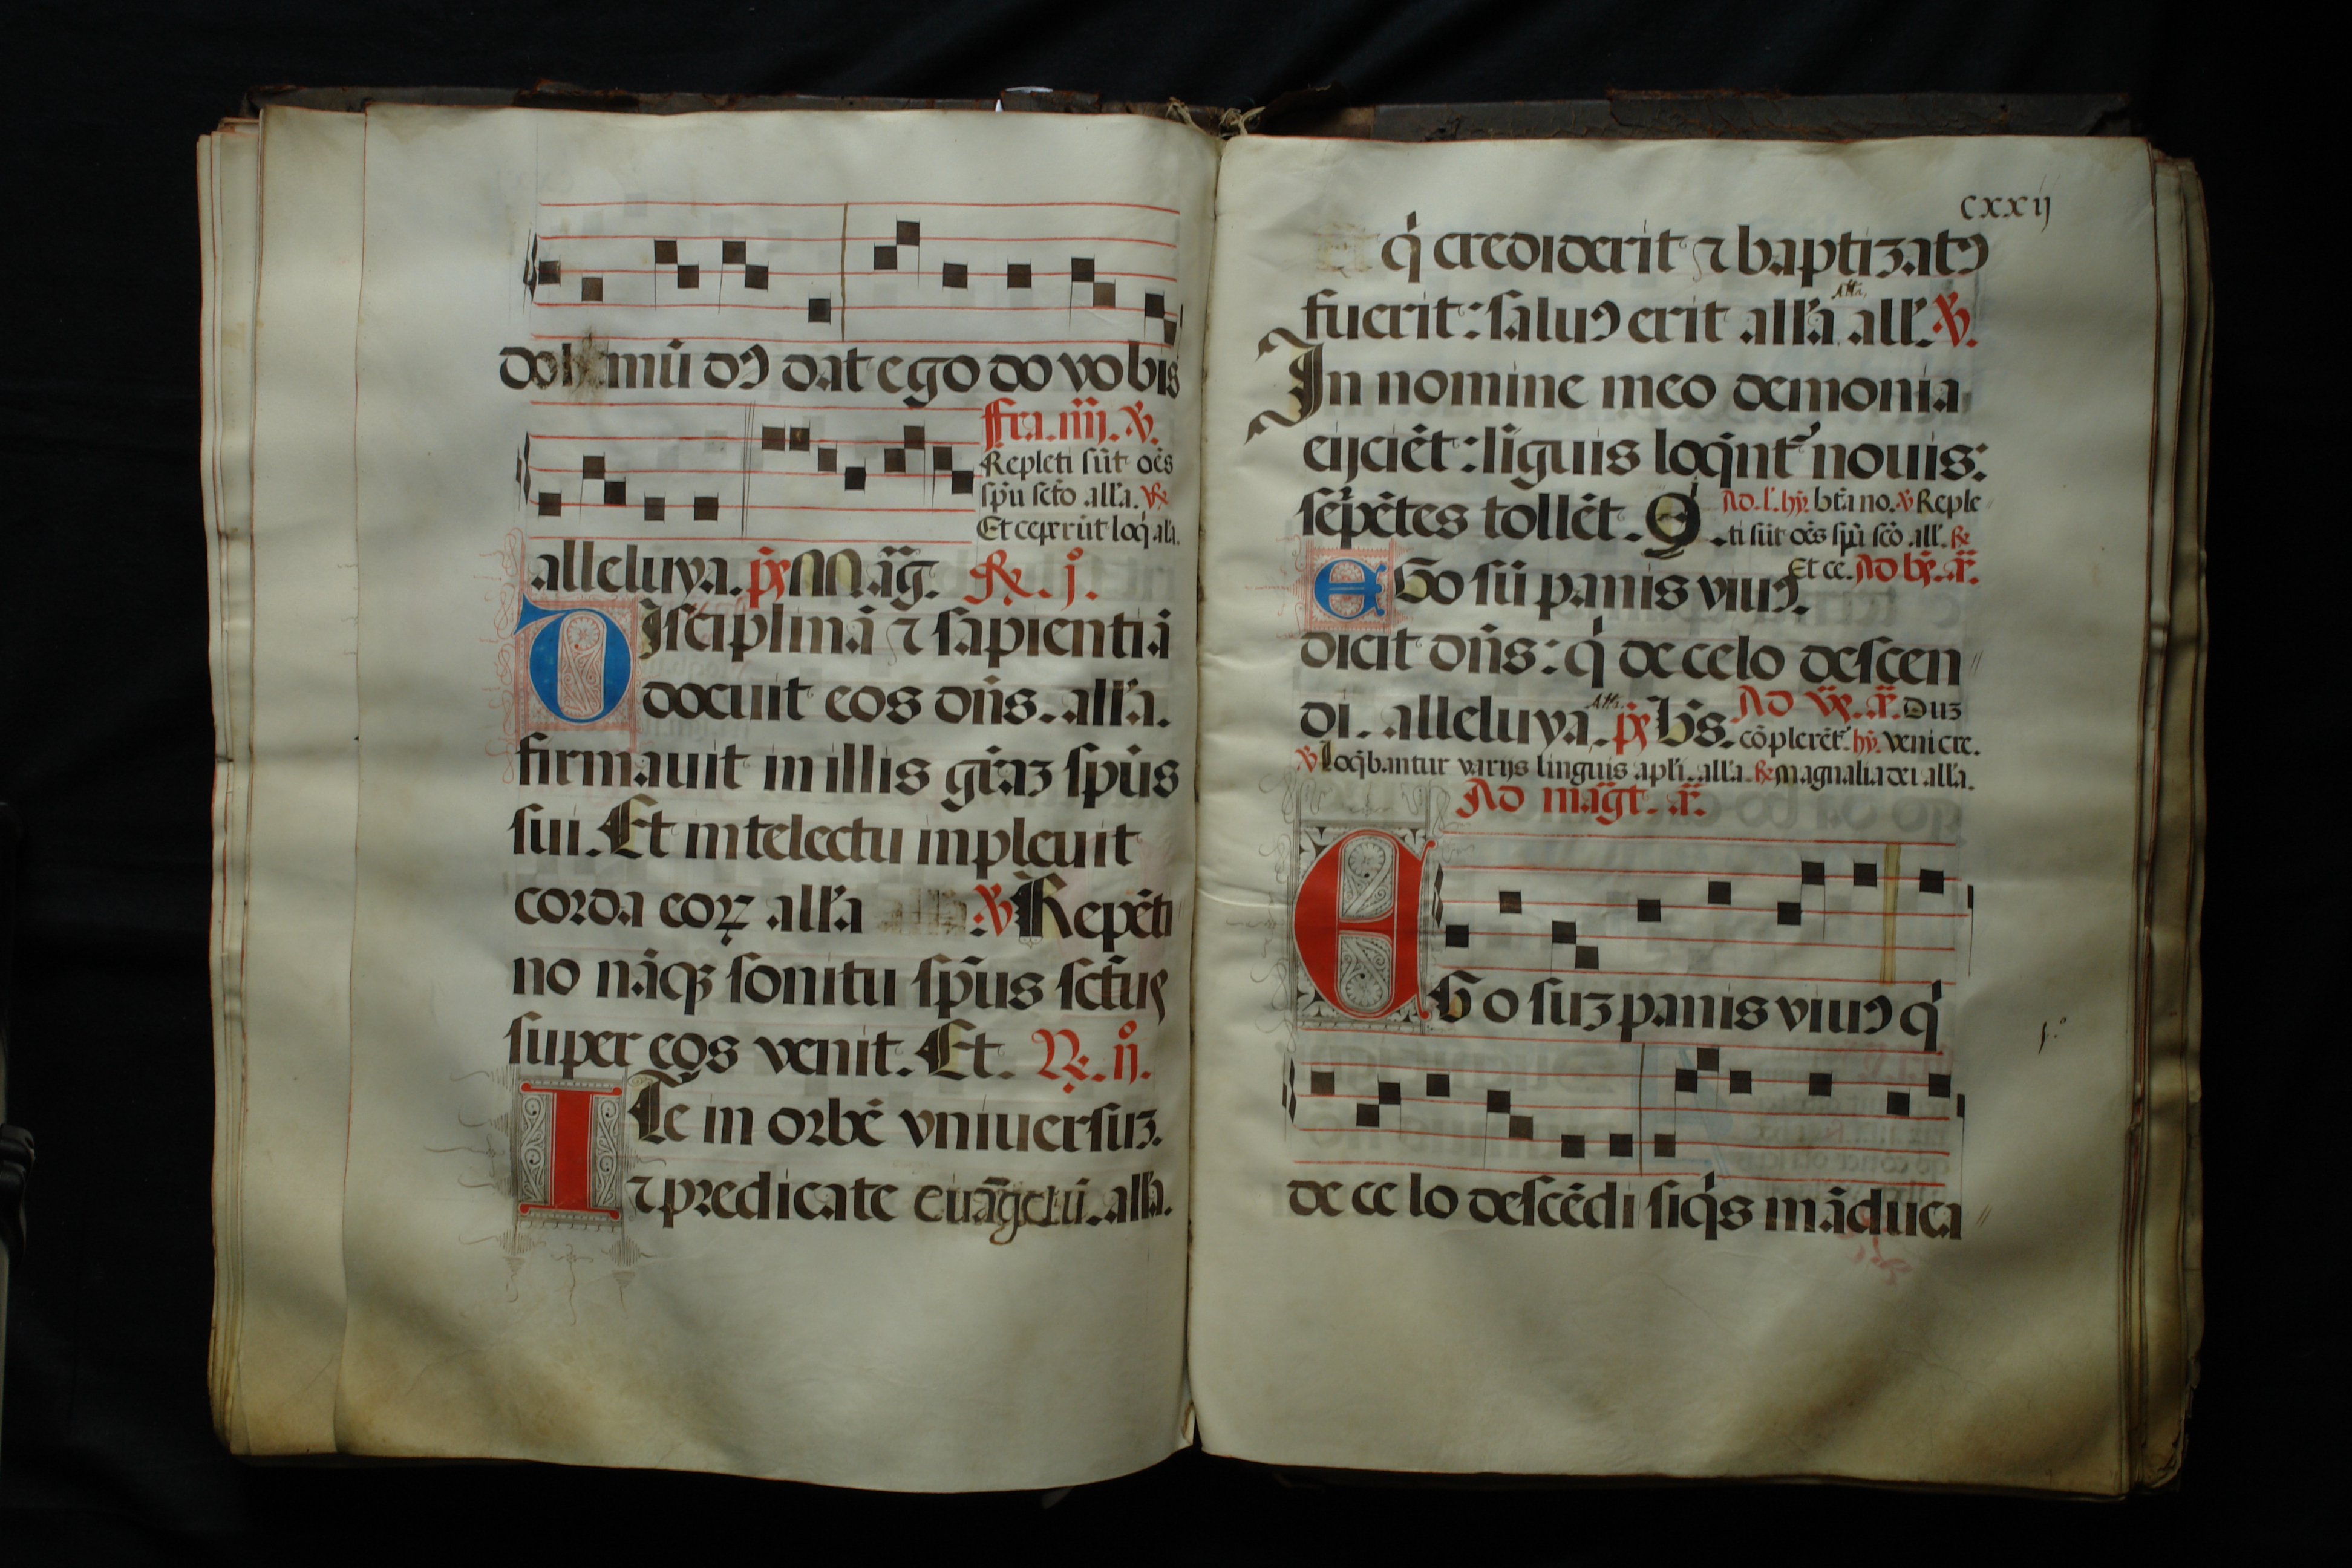 mū dꝰ dat ego do vobis
Fra. iiij. ℣.
Repleti sūt oēs
spū scto all'a. ℟
Et ceperūt loq̄ ala.
alleluya. p̄s Māg. ℟. j°.
Disciplinā ⁊ sapientiā
docuit eos dn̄s. all'a.
firmauit in illis gr̄aꝫ spūs
sui. Et intelectu impleuit
corda eoꝝ all'a ℣ Repēti
no nāqꝫ sonitu sp̄us sctūs
super eos venit. Et. ℟. ij°.
Ite in orbē vniuersuꝫ.
⁊ predicate euāgeliū. all'a.
cxxij
q' crediderit ⁊ baptizatꝰ
fuerit: saluꝰ erit all'a all'. ℣.
In nomine meo demonia
eijciēt: līguis loq̄nt' nouis:
sērpētes tollēt. Q'
Ad. l'. hȳ. btā no. ℣ Reple
ti sūt oēs spū scō all'. ℟
Et ce. Ad bn̄. a͞.
Ego sū panis viuꝰ.
dicit dn̄s: q' de celo descen
di. alleluya. p̄s Bn̄s. Ad vs̄. a͞. Duꝫ
cōplerēt'. hȳ. veni cre.
℣ Loq̄bantur varijs linguis apl'i. all'a. ℟ Magnalia dei all'a.
Ad māgt. a͞.
Ego suꝫ panis viuꝰ q'
de ce lo descēdi siq's māduca